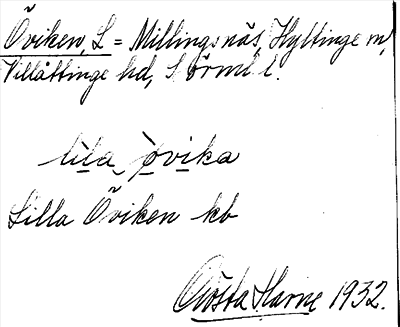 Öviken, L = Millingsnäs, Hyltinge sn,
Villåttinge hd, Sörml l.
lila øvika
Lilla Öviken kb
Gösta Harne 1932.